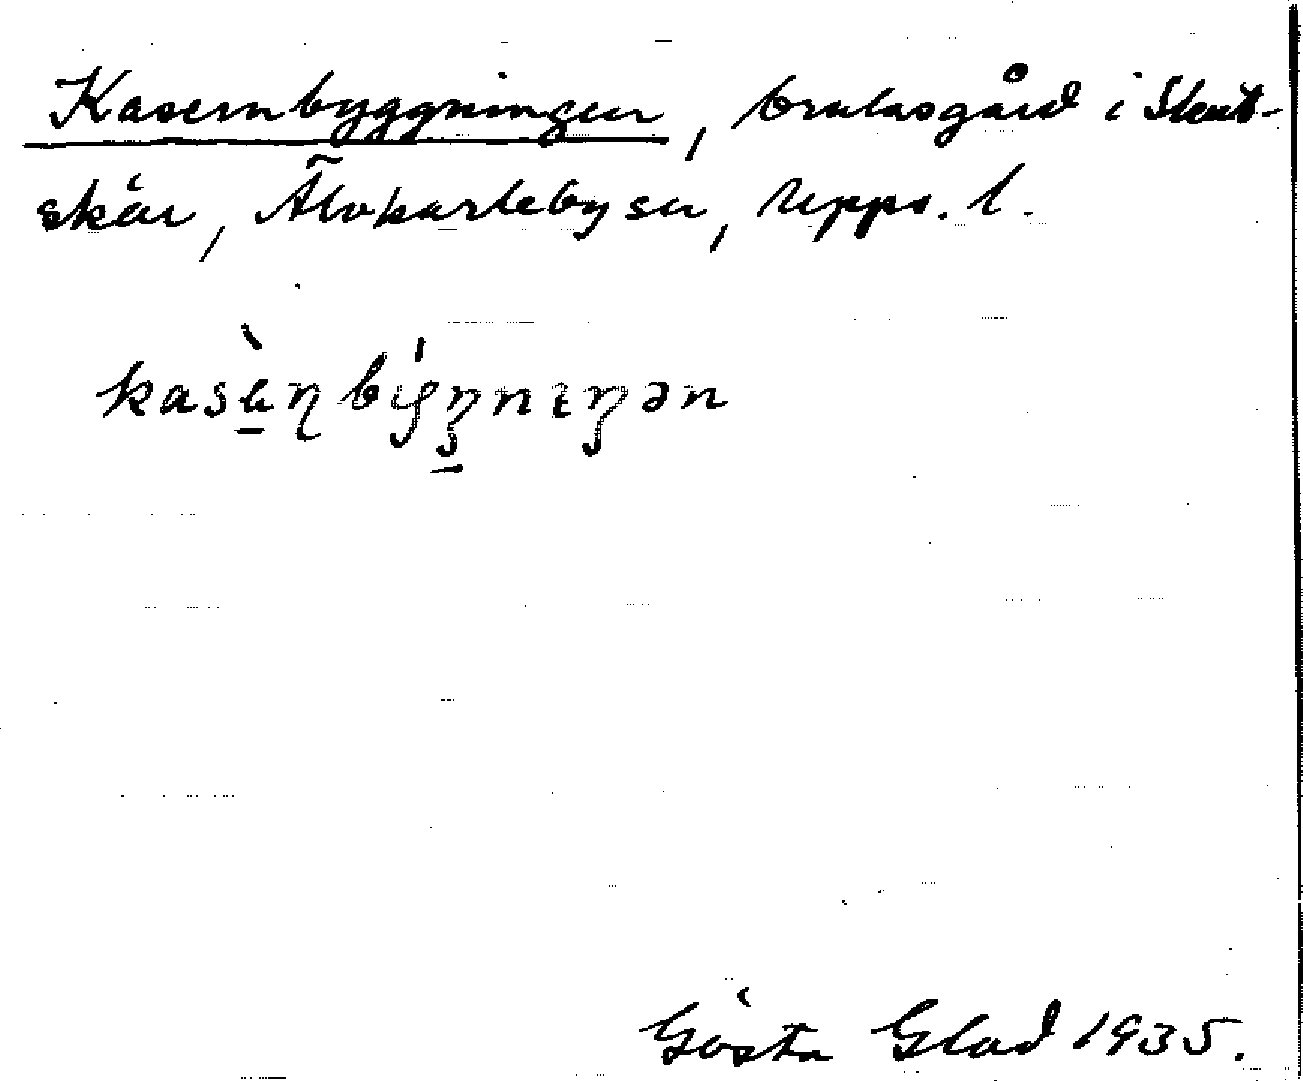 Kasernbyggningen, bruksgård i Skut-
skär, Älvkarleby sn, Upps. l.
kasὲɳbýŋnɩŋən
Gösta Glad 1935.